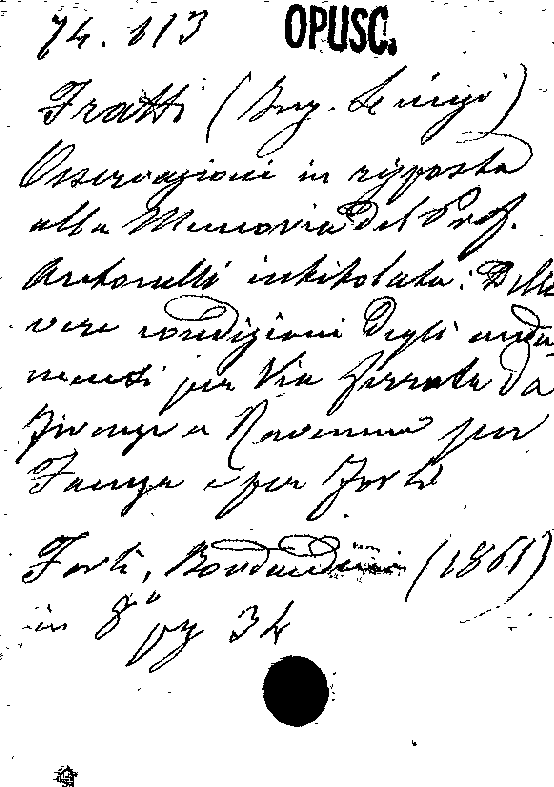 74.113 OPUSC.
Fratti (Ing. Luigi)
Osservazioni in risposta
alla Memoria del Prof.
Antonelli intitolata: Delle
vere condizioni degli anda
menti per Via ferrata da
Firenze a Ravenna per
Faenza e per Forlì
Forlì, Bordandini (1861)
in 8° pg 34